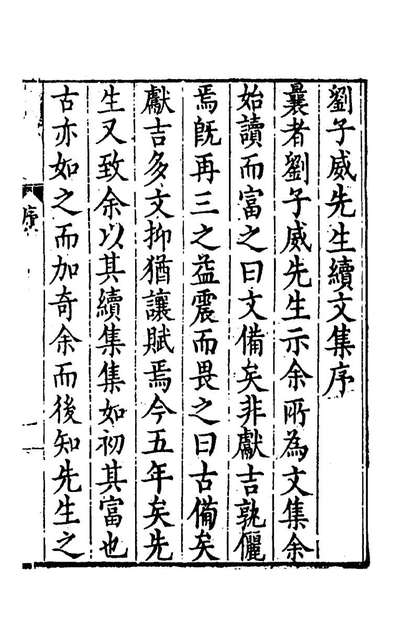 劉子威先生續文集序
曩者劉子威先生示余所為文集余
始讀而富之曰文備矣非獻吉孰儷
焉旣再三之益震而畏之曰古備矣
獻吉多文抑猶讓賦焉今五年矣先
生又致余以其續集集如初其富也
古亦如之而加奇余而後知先生之
序
一